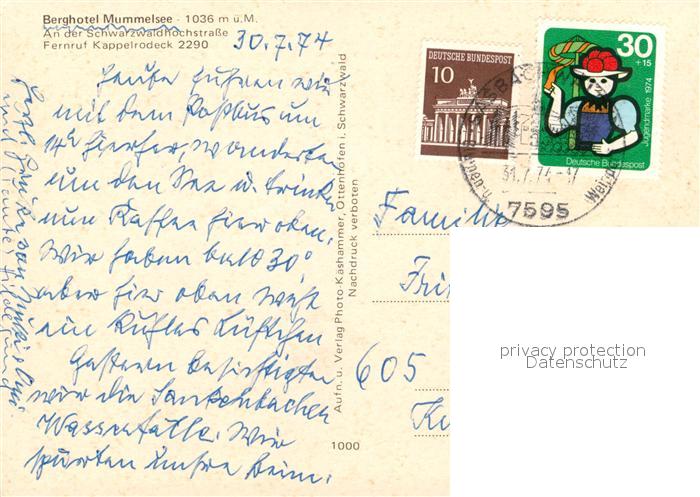 Berghotel Mummelsee - 1036 m ü.M.
An der Schwarzwaldhochstraße
Fernruf Kappelrodeck 2290
30.7.74
Heute fuhren wir
mit dem Postbus um
14h hierher, wanderten
um den See u. trinken
nun Kaffee hier oben.
Wir haben bald 30°
aber hier oben weht
ein kühles Lüftchen
Gestern besichtigten
wir die Sankenbacher
Wasserfälle. Wir
spürten unsre Beine.
und Tante Hildegund
Aufn. u. Verlag Photo-Kashammer, Ottenhöfen i. Schwarzwald
Nachdruck verboten
1000
DEUTSCHE BUNDESPOST
10
30
+15
Jugendmarke 1974
Deutsche Bundespost
31.7.74
7595
Familie
605
privacy protection
Datenschutz